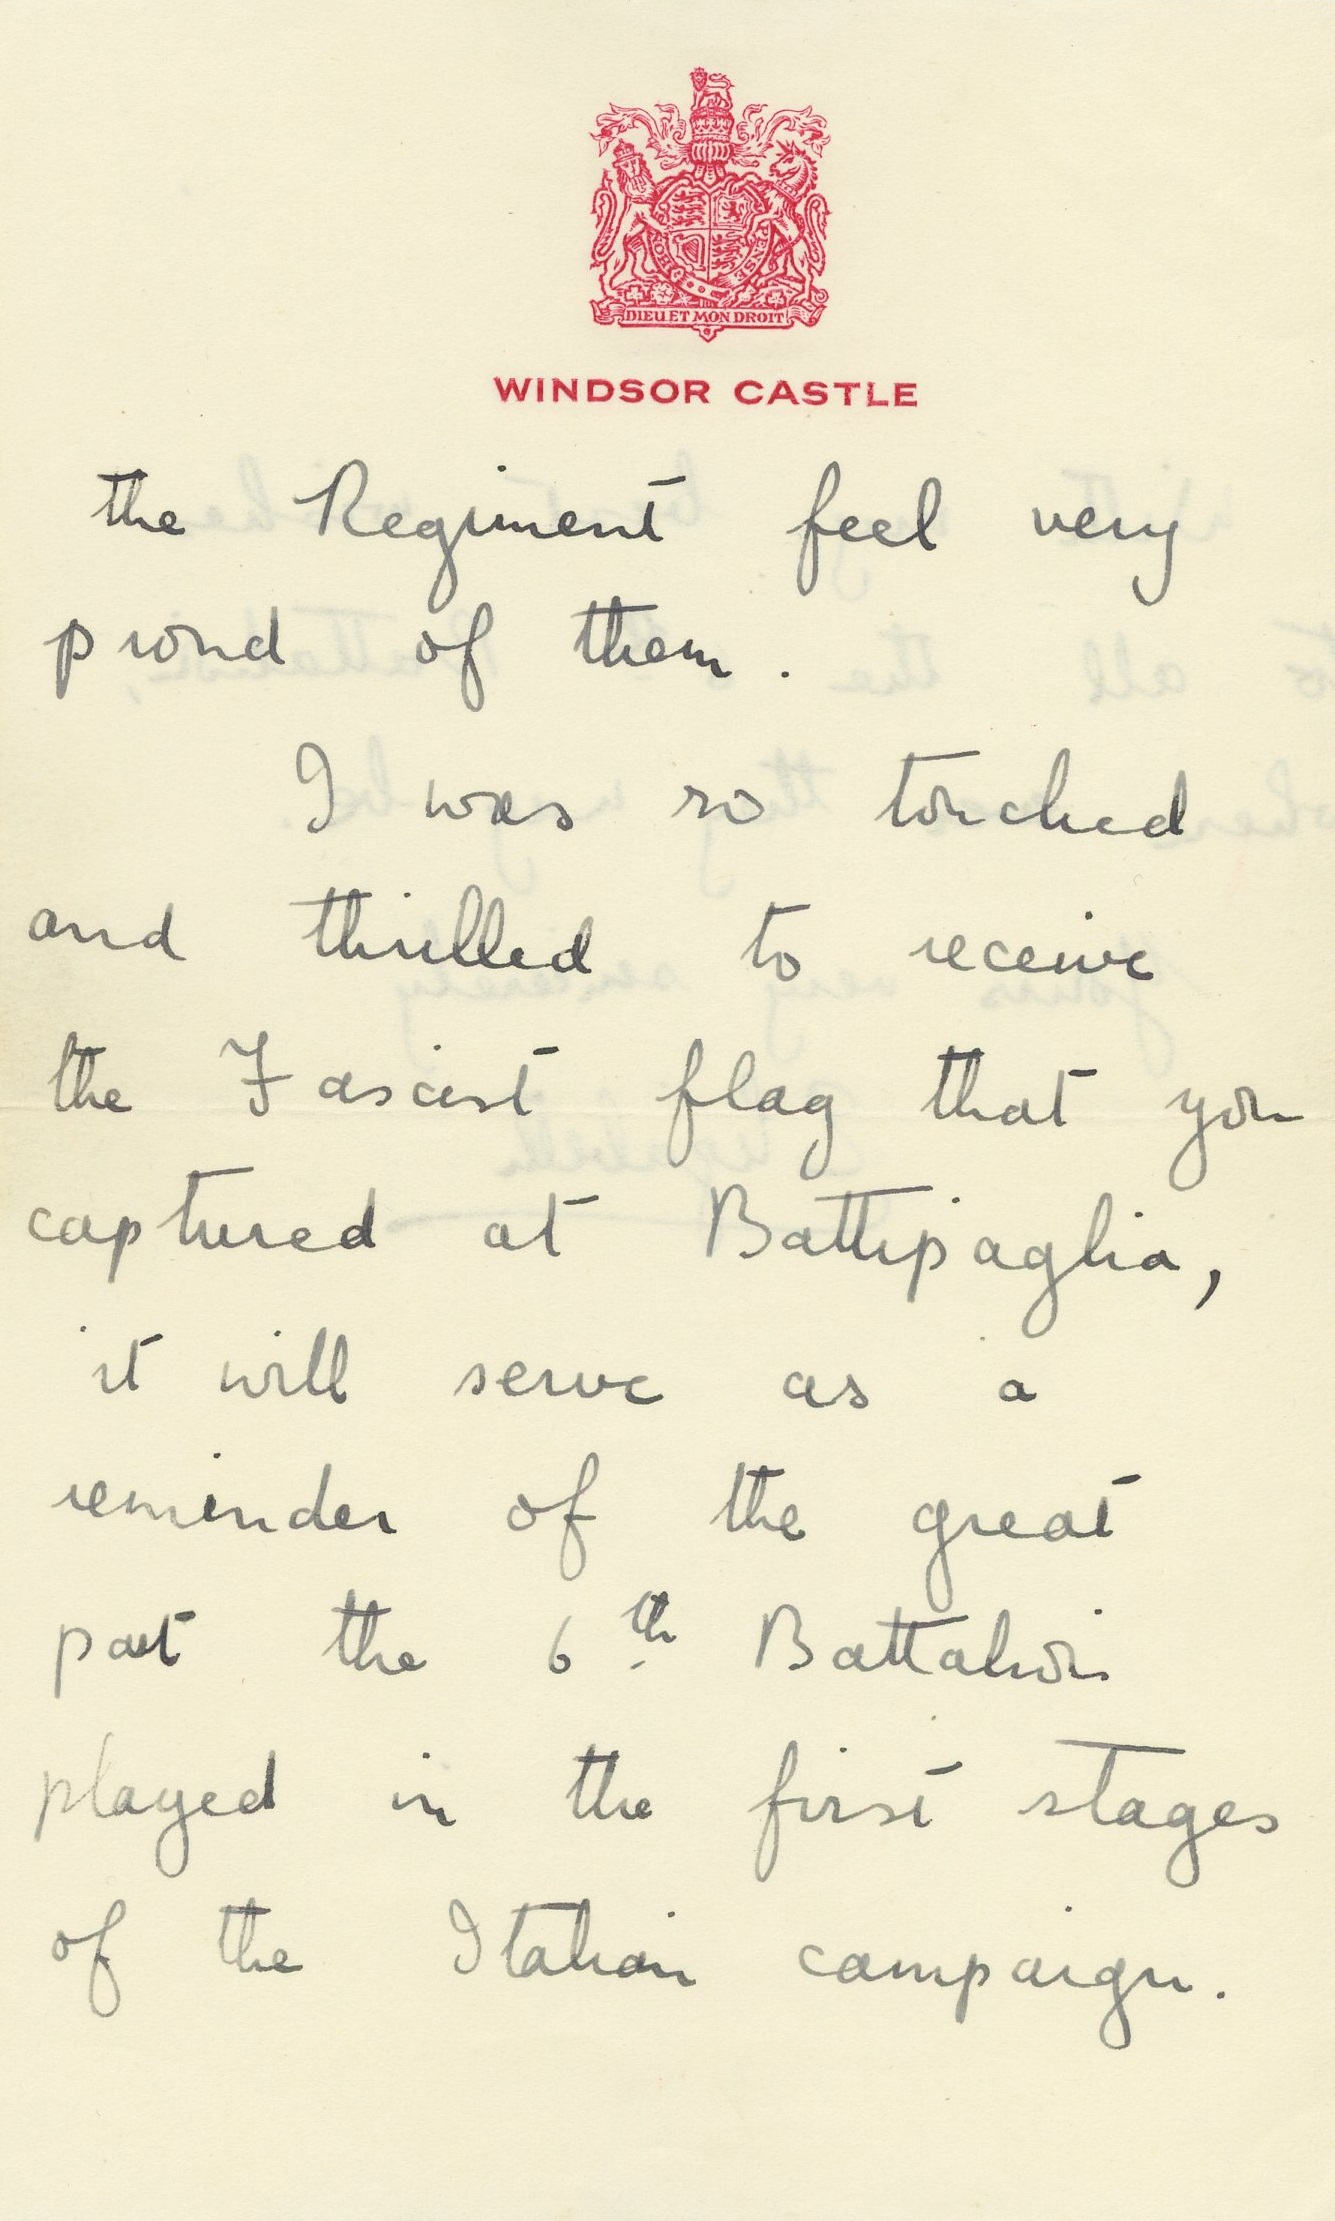 DIEU ET MON DROIT
WINDSOR CASTLE
the Regiment feel very
proud of them.
I was so touched
and thrilled to receive
the Fascist flag that you
captured at Battipaglia,
it will serve as a
reminder of the great
part the 6th Battalion
played in the first stages
of the Italian campaign.